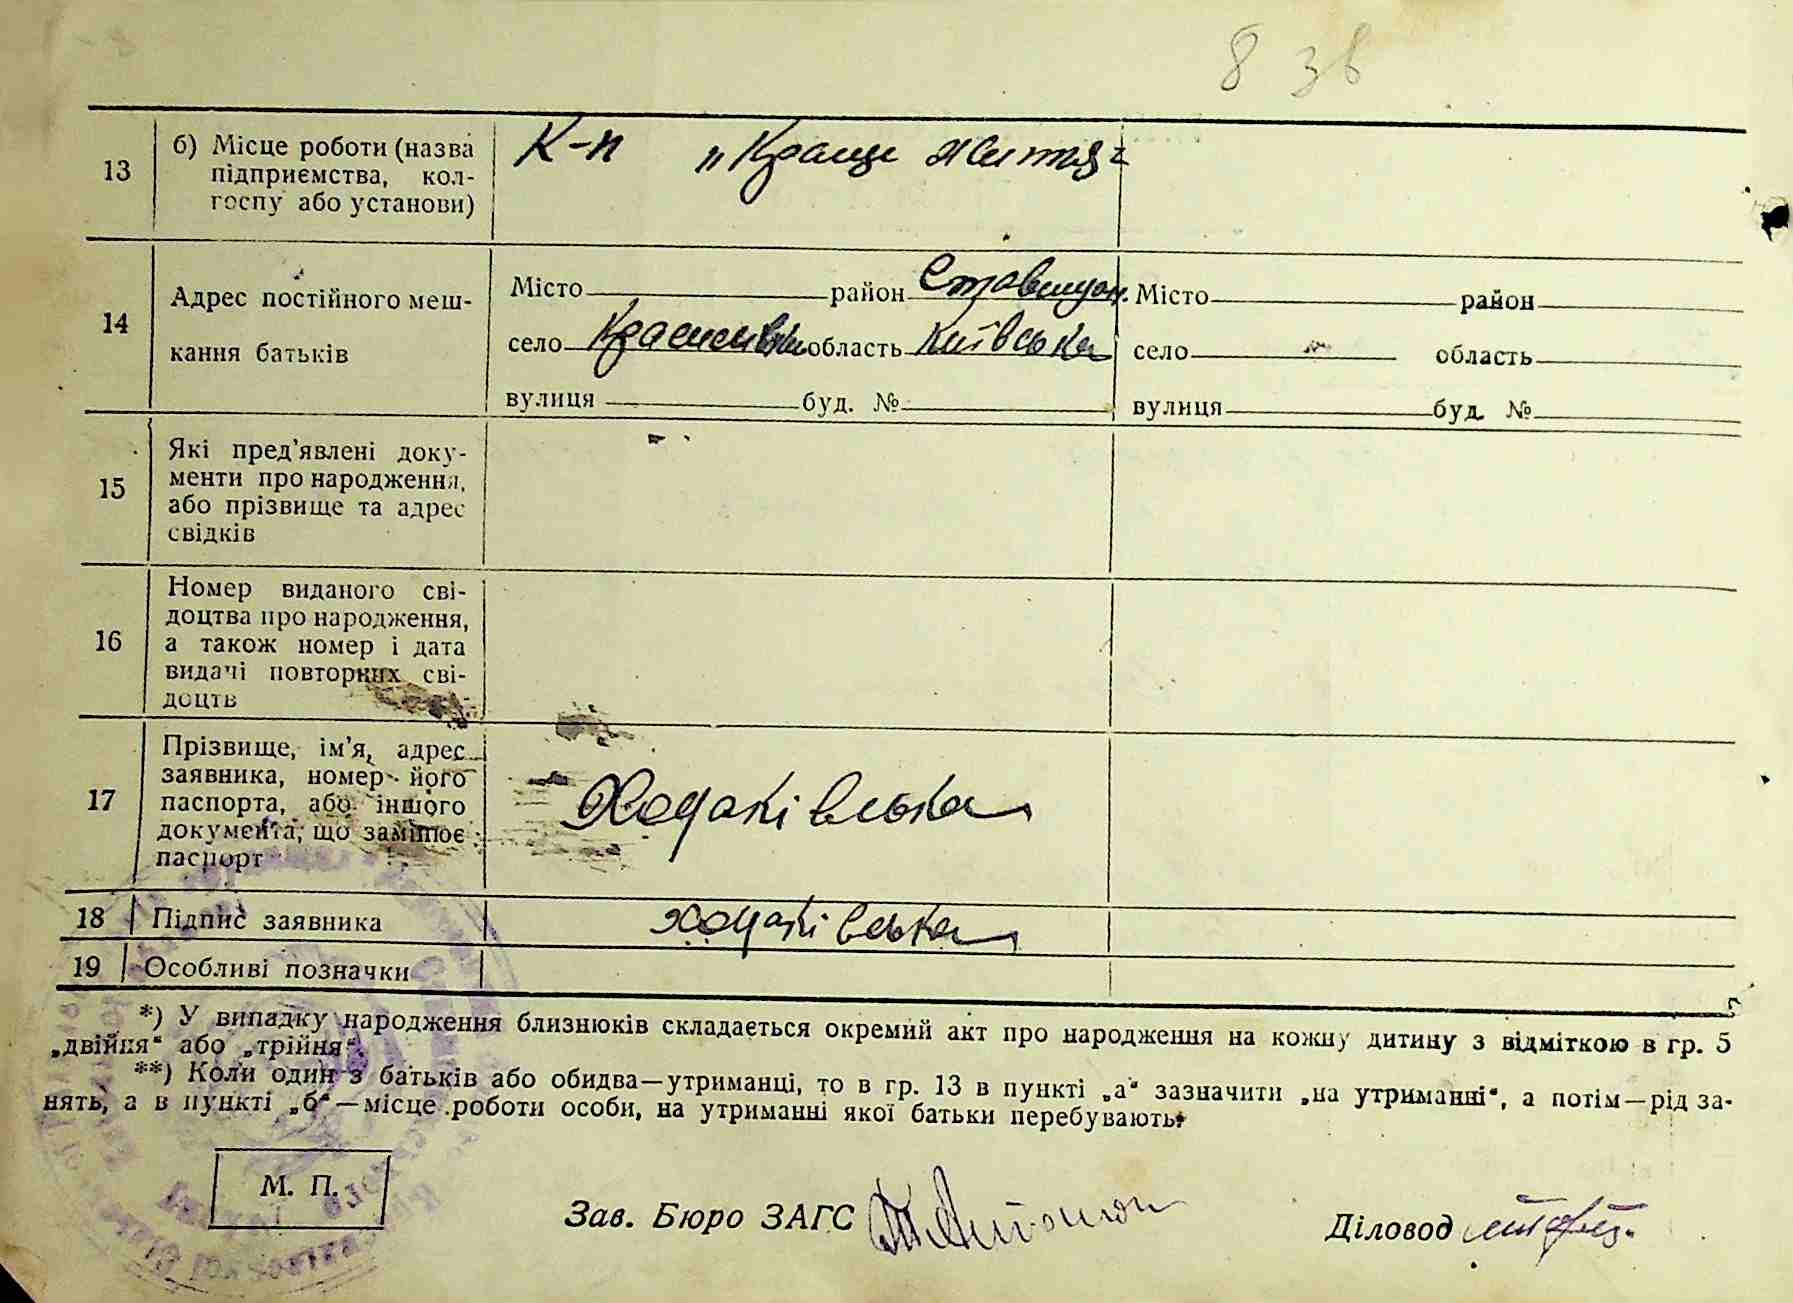 8 зв
13
б) Місце роботи (назва
підприємства, кол-
госпу або установи)
К-п „Краще життя"
14
Адрес постійного меш-
кання батьків
Місто район Ставищан.
село Красилівка область Київська
вулиця буд. №
Місто район
село область
вулиця буд. №
15
Які пред'явлені доку-
менти про народження,
або прізвище та адрес
свідків
16
Номер виданого сві-
доцтва про народження,
а також номер і дата
видачі повторних сві-
доцтв
17
Прізвище, ім'я, адрес
заявника, номер його
паспорта, або іншого
документа, що заміщює
паспорт
Ходаківська
18 Підпис заявника
Ходаківська
19 Особливі позначки
*) У випадку народження близнюків складається окремий акт про народження на кожну дитину з відміткою в гр. 5
„двійня" або „трійня".
**) Коли один з батьків або обидва—утриманці, то в гр. 13 в пункті „а" зазначити „на утриманні", а потім—рід за-
нять, а в пункті „б"—місце роботи особи, на утриманні якої батьки перебувають.
М. П.
Зав. Бюро ЗАГС
Діловод